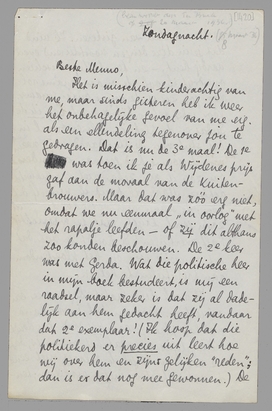 Zondagnacht.
Beste Menno,
Het is misschien kinderachtig van
me, maar sinds gisteren heb ik weer
het onbehagelijke gevoel van me erg
als een ellendeling tegenover jou te
gedragen. Dat is nu de 3e maal! De 1e
was toen ik je als Wijdenes prijs
gaf aan de moraal van de Kuiten-
brouwers. Maar dat was zóo erg niet,
omdat we nu eenmaal „in oorlog" met
het rapalje leefden – of zij dit althans
zoo konden beschouwen. De 2e keer
was met Gerda. Wat die politische heer
in mijn boek bestudeert, is mij een
raadsel, maar zeker is dat zij al dade-
lijk aan hem gedacht heeft, vandaar
dat 2e exemplaar! (Ik hoop dat die
politiekerd er precies uit leert hoe
wij over hem en zijns gelijken "reden";
dan is er dat nog mee gewonnen.) De